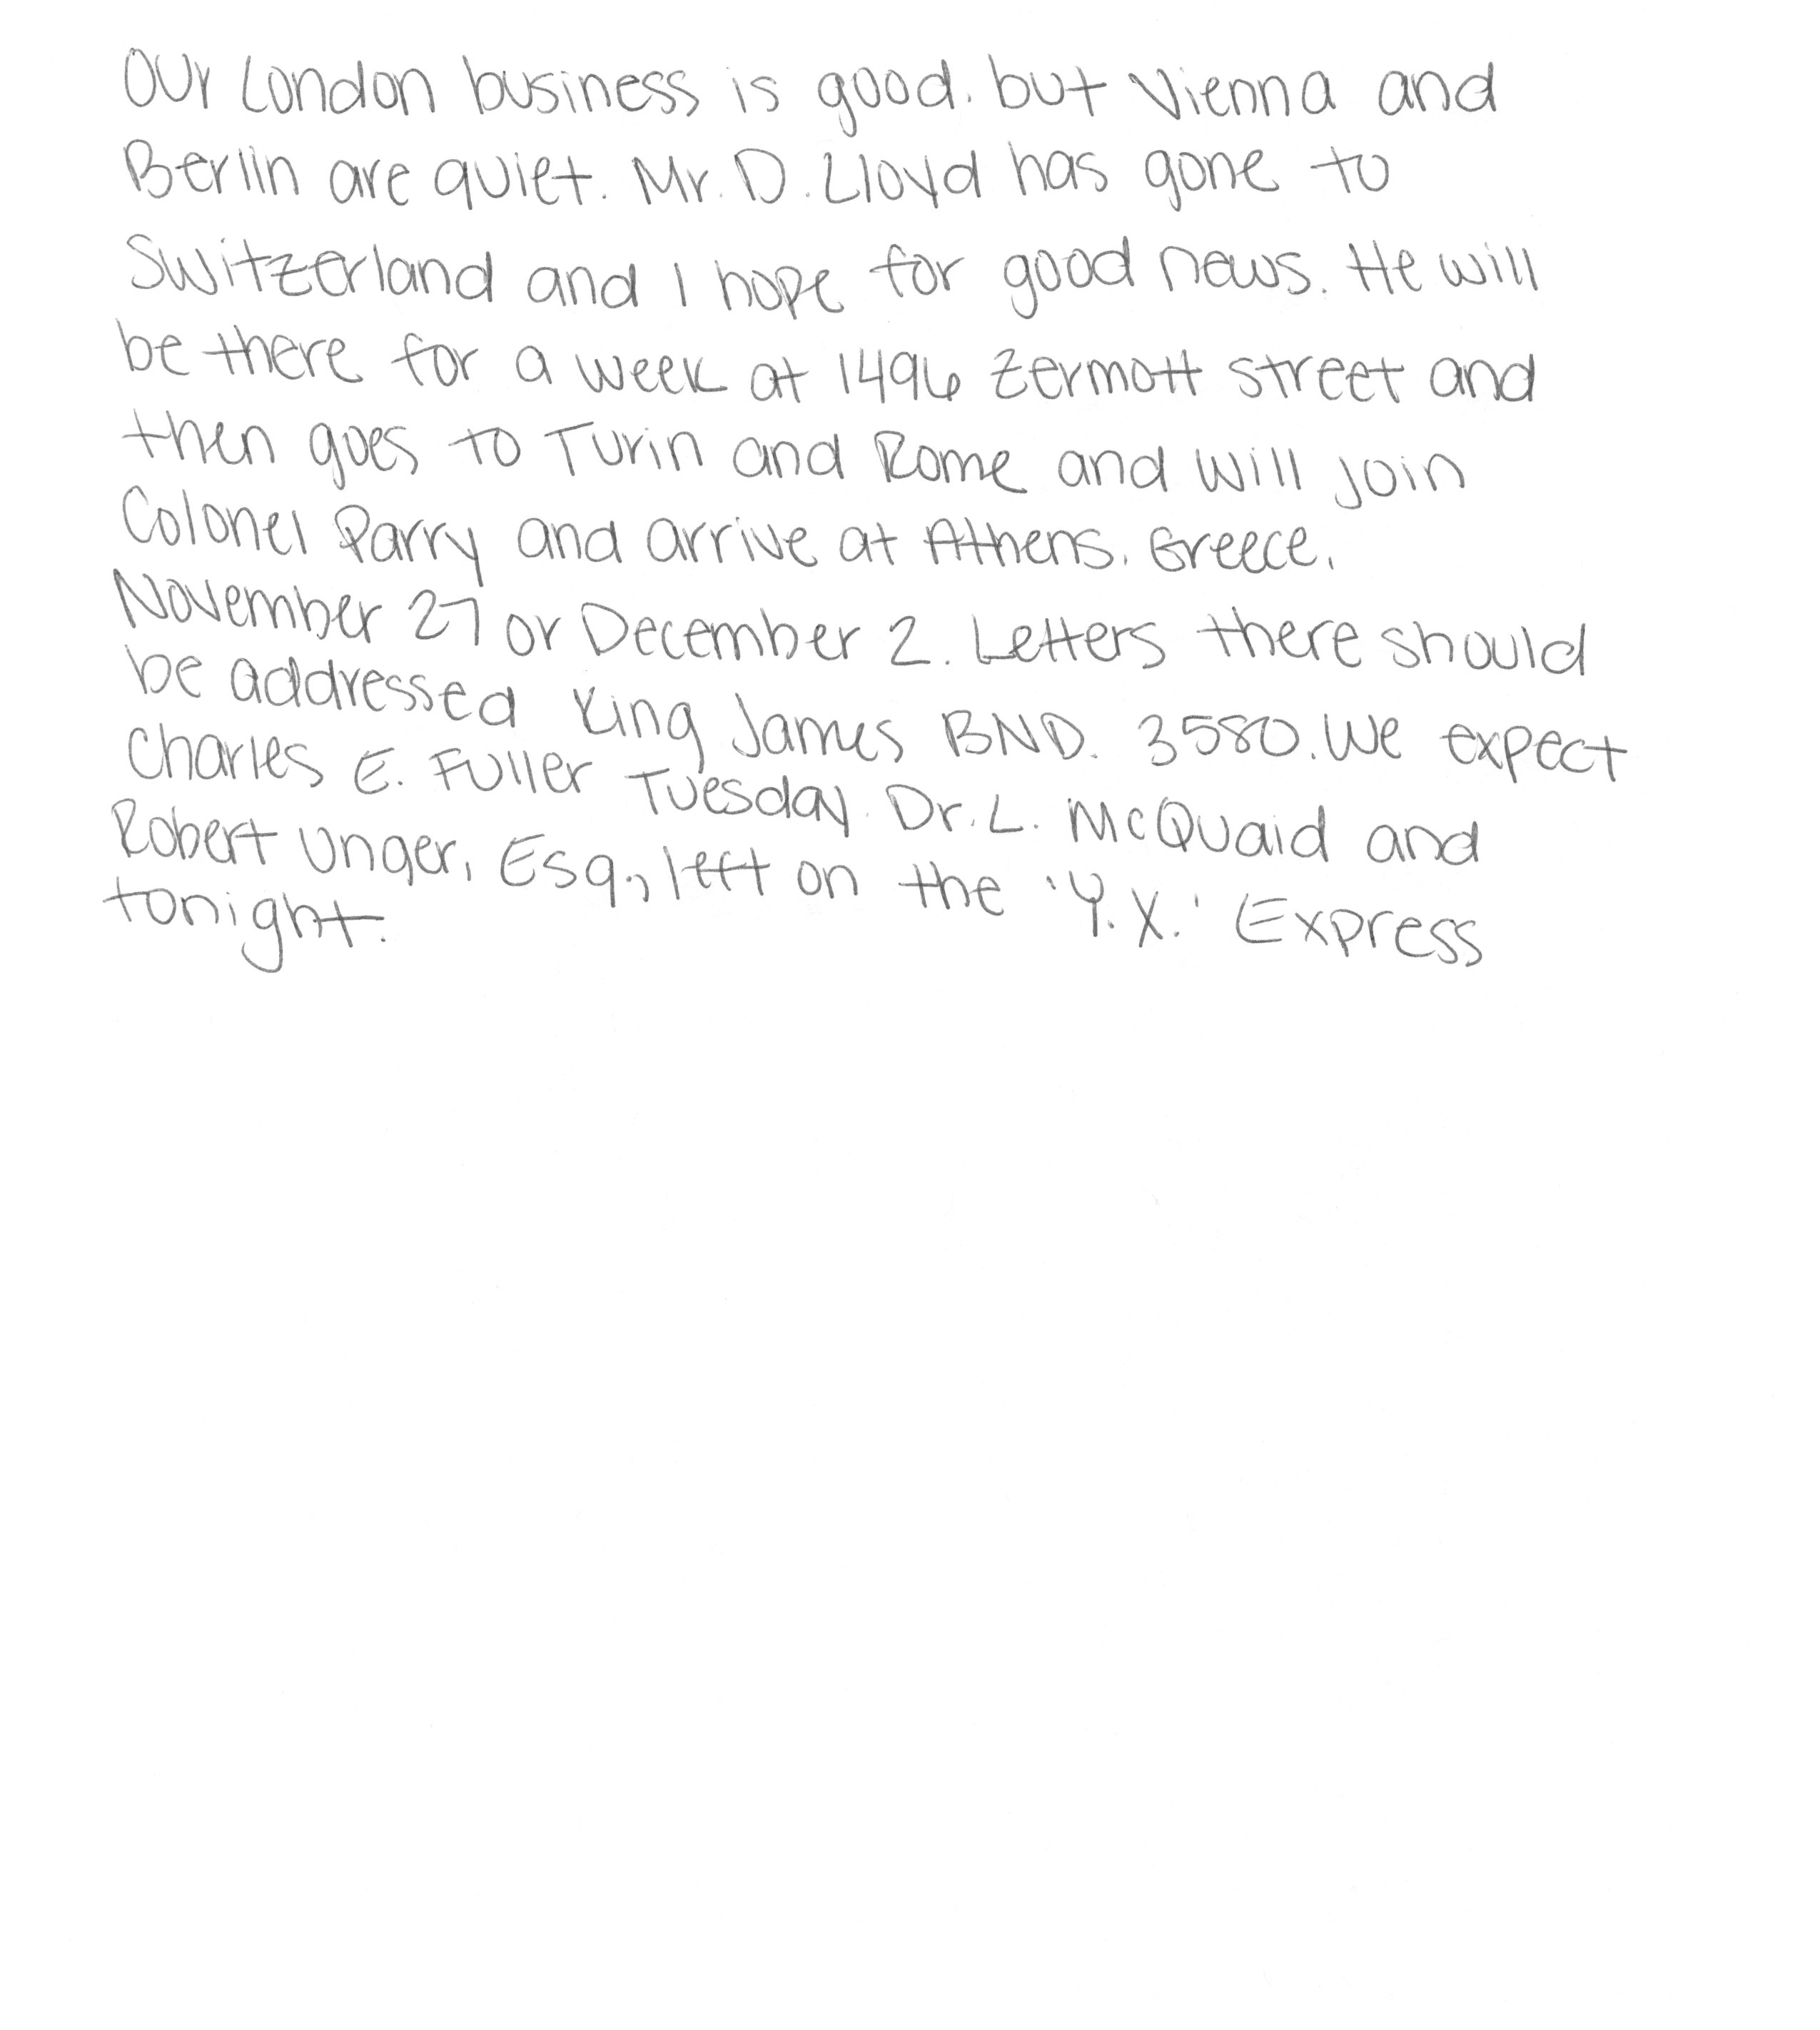 Our London business is good, but Vienna and
Berlin are quiet. Mr. D. Lloyd has gone to
Switzerland and I hope for good news. He will
be there for a week at 1496 Zermott street and
then goes to Turin and Rome and will join
Colonel Parry and arrive at Athens, Greece,
November 27 or December 2. Letters there should
be addressed King James BND. 3580. We expect
Charles E. Fuller Tuesday. Dr. L. McQuaid and
Robert Unger, Esq., left on the 'Y.X.' Express
tonight.